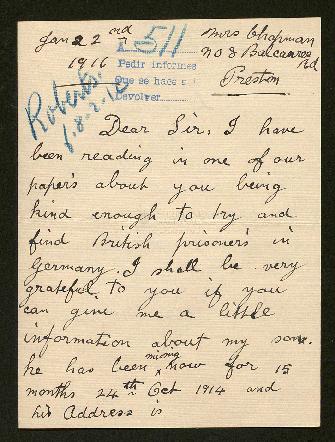 Jan 22nd
1916
Mrs Chapman
No 8 Balcarres
Rd
Preston
511
Pedir informes
Que se hace
Devolver
Roberts.
Dear Sir, I have
been reading in one of our
papers about you being
kind enough to try and
find British prisoners in
Germany. I shall be very
grateful to you if you
can give me a little
information about my son.
he has been missing now for 15
months 24th Oct 1914 and
his Address is